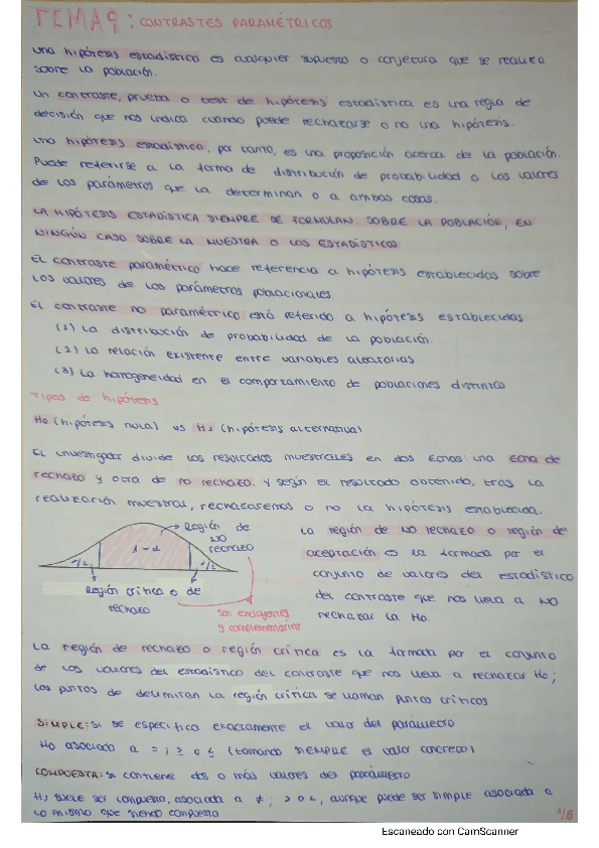 TEMA 9: CONTRASTES PARAMÉTRICOS
Una hipótesis estadística es cualquier supuesto o conjetura que se realiza
sobre la población.
Un contraste, prueba o test de hipótesis estadística es una regla de
decisión que nos indica cuando puede rechazarse o no una hipótesis.
Una hipótesis estadística, por tanto, es una proposición acerca de la población.
Puede referirse a la forma de distribución de probabilidad o los valores
de los parámetros que la determinan o a ambas cosas.
LA HIPÓTESIS ESTADÍSTICA SIEMPRE SE FORMULAN SOBRE LA POBLACIÓN, EN
NINGÚN CASO SOBRE LA MUESTRA O LOS ESTADÍSTICOS
El contraste paramétrico hace referencia a hipótesis establecidas sobre
los valores de los parámetros poblacionales.
El contraste no paramétrico está referido a hipótesis establecidas
(1) La distribución de probabilidad de la población.
(2) La relación existente entre variables aleatorias
(3) La homogeneidad en el comportamiento de poblaciones distintas
Tipos de hipótesis
H0 (hipótesis nula) vs H1 (hipótesis alternativa)
El investigador divide los resultados muestrales en dos zonas: una zona de
rechazo y otra de no rechazo. Y según el resultado obtenido, tras la
realización muestras, rechazaremos o no la hipótesis establecida.
Región de
NO
rechazo
1-α
α/2
α/2
Región crítica o de
rechazo
son excluyentes
y complementarias
La región de NO rechazo o región de
aceptación es la formada por el
conjunto de valores del estadístico
del contraste que nos lleva a NO
rechazar la H0.
La región de rechazo o región crítica es la formada por el conjunto
de los valores del estadístico del contraste que nos lleva a rechazar H0;
los puntos de delimitan la región crítica se llaman puntos críticos
SIMPLE: Si se especifica exactamente el valor del parámetro
H0 asociada a =, ≥ o ≤ (tomando SIEMPRE el valor concreto)
COMPUESTA: si contiene dos o más valores del parámetro
H1 suele ser compuesta, asociada a ≠, > o <, aunque puede ser simple asociada a
lo mismo que siendo compuesto
1/6
Escaneado con CamScanner